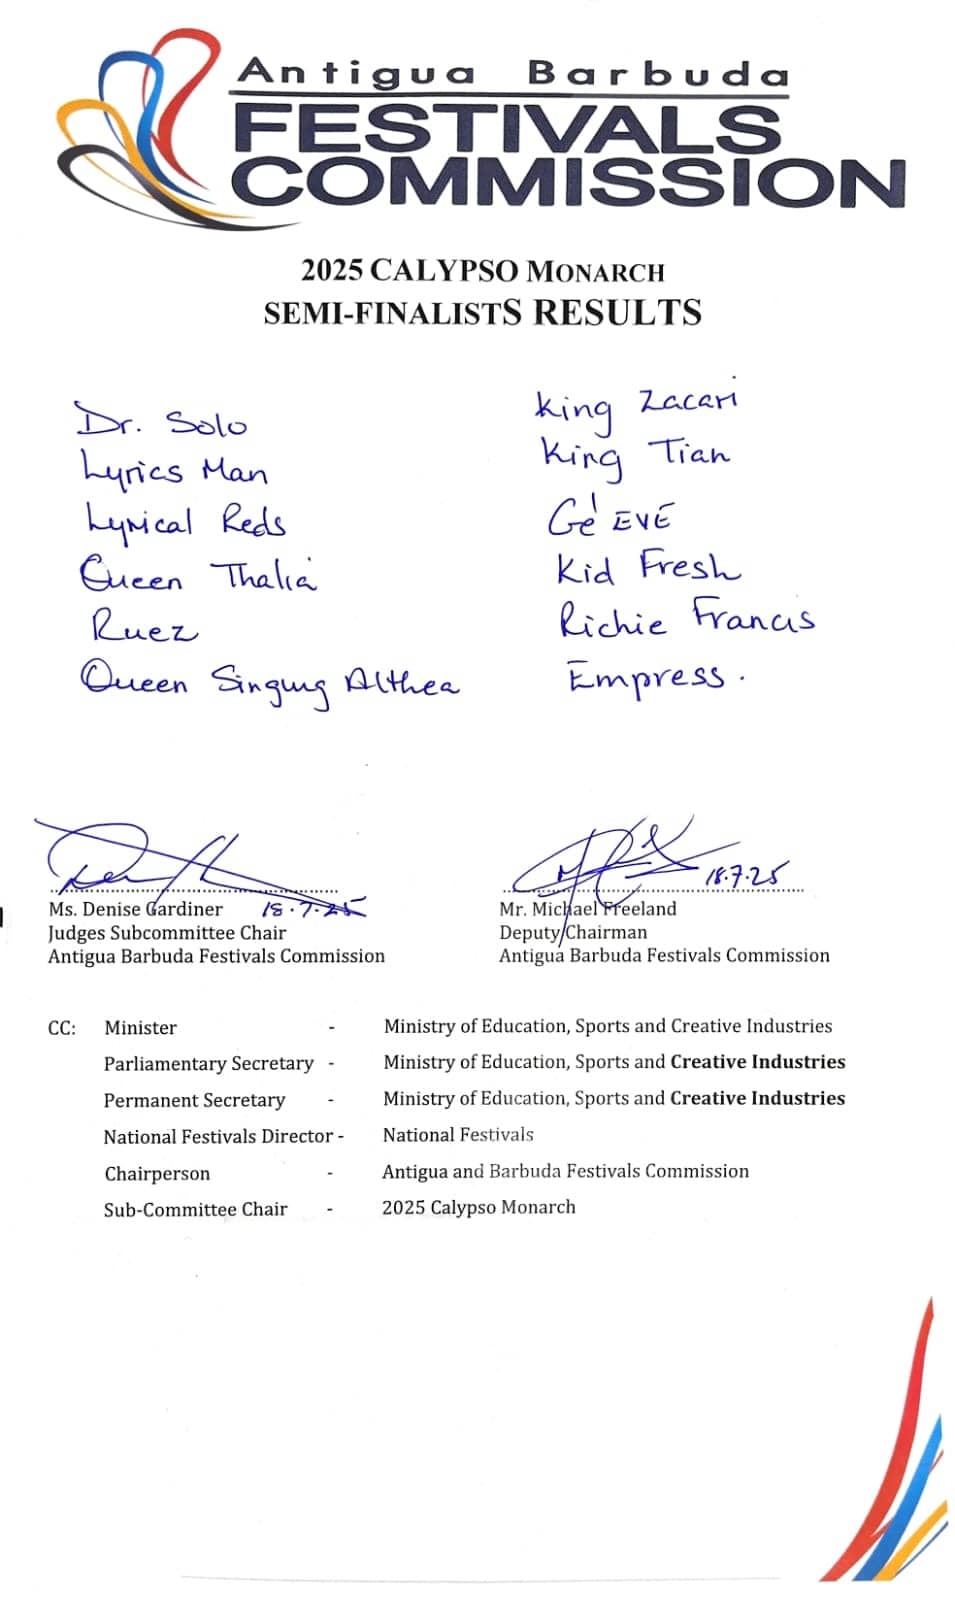 Antigua Barbuda
FESTIVALS
COMMISSION
2025 CALYPSO MONARCH
SEMI-FINALISTS RESULTS
Dr. Solo
Lyrics Man
Lyrical Reds
Queen Thalia
Ruez
Queen Singing Althea
King Zacari
King Tian
Gé EVE
Kid Fresh
Richie Francis
Empress.
Ms. Denise Gardiner 18.7.25
Judges Subcommittee Chair
Antigua Barbuda Festivals Commission
18.7.25
Mr. Michael Freeland
Deputy Chairman
Antigua Barbuda Festivals Commission
CC: Minister - Ministry of Education, Sports and Creative Industries
Parliamentary Secretary - Ministry of Education, Sports and Creative Industries
Permanent Secretary - Ministry of Education, Sports and Creative Industries
National Festivals Director - National Festivals
Chairperson - Antigua and Barbuda Festivals Commission
Sub-Committee Chair - 2025 Calypso Monarch